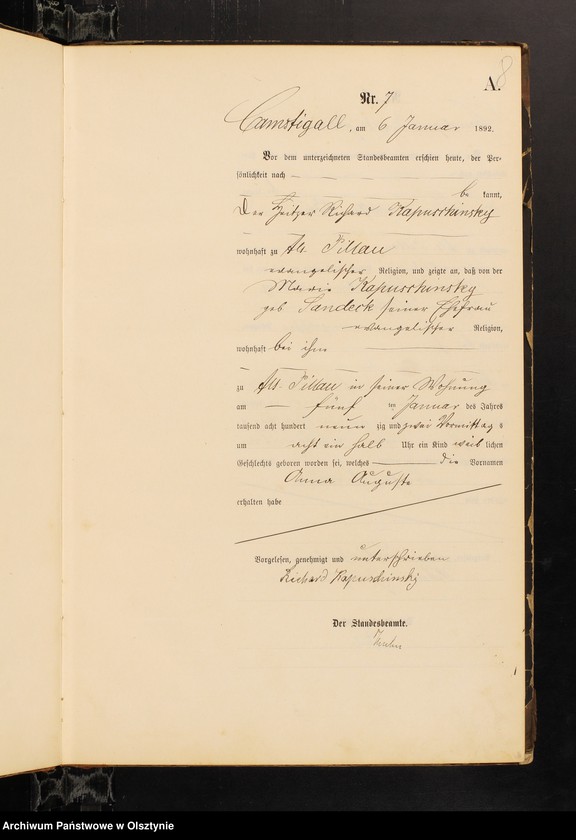 A.
8
Nr. 7
Camstigall, am 6 Januar 1892.
Vor dem unterzeichneten Standesbeamten erschien heute, der Per-
sönlichkeit nach
be kannt,
Der Heitzer Richard Kapuschinsky
wohnhaft zu Alt Pillau
evangelischer Religion, und zeigte an, daß von der
Marie Kapuschinsky
geb Sandeck seiner Ehefrau
evangelischer Religion,
wohnhaft bei ihm
zu Alt-Pillau in seiner Wohnung
am fünf ten Januar des Jahres
tausend acht hundert neun zig und zwei Vormittags
um acht ein halb Uhr ein Kind weib lichen
Geschlechts geboren worden sei, welches die Vornamen
Anna Auguste
erhalten habe
Vorgelesen, genehmigt und unterschrieben
Richard Kapuschinsky
Der Standesbeamte.
Archiwum Państwowe w Olsztynie